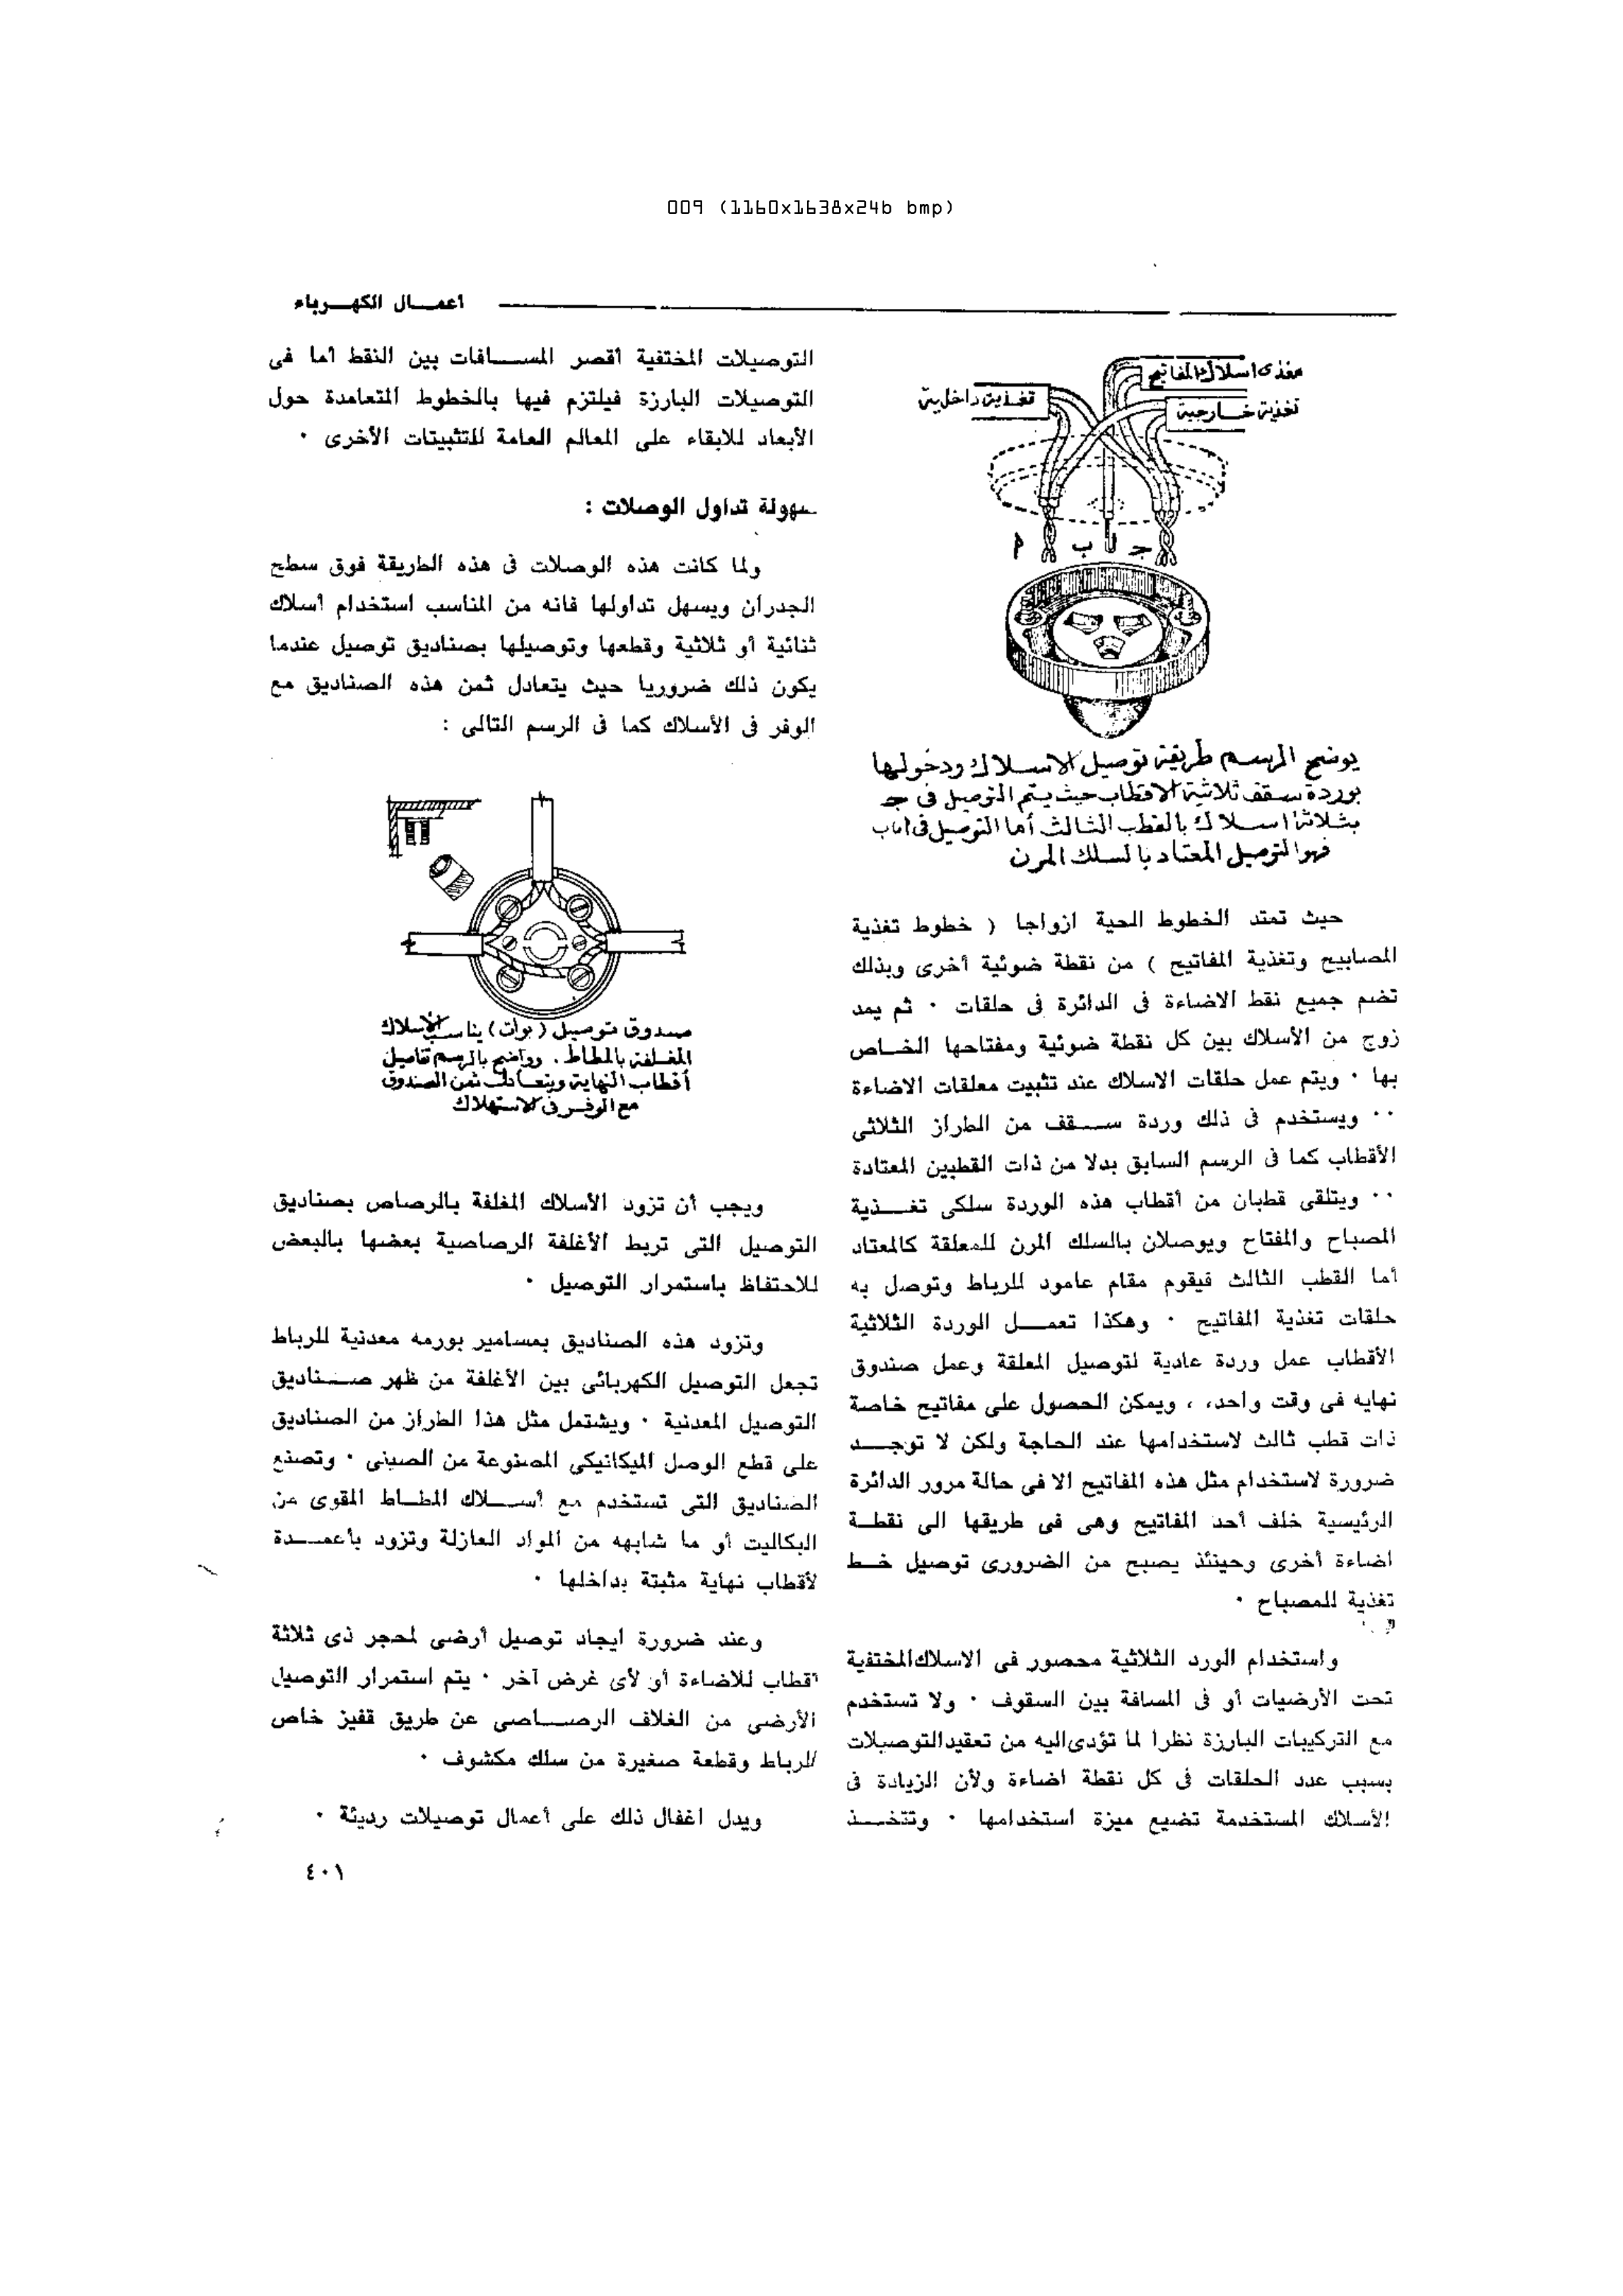 009 (1160x1638x24b bmp)
أعمـــال الكهـــرباء
مغذى اسلاك المفاتيح
تغذية داخلية
تغذية خـارجية
أ ب جـ
يوضح الرسم طريقة توصيل الاسلاك ودخولها
بوردة سقف ثلاثية الاقطاب حيث يتم التوصيل فى جـ
بثلاثة اسلاك بالقطب الثالث أما التوصيل فى أ، ب
فهو التوصيل المعتاد بالسلك المرن
حيث تمتد الخطوط الحية ازواجا ( خطوط تغذية
المصابيح وتغذية المفاتيح ) من نقطة ضوئية أخرى وبذلك
تضم جميع نقط الاضاءة فى الدائرة فى حلقات ٠ ثم يمد
زوج من الأسلاك بين كل نقطة ضوئية ومفتاحها الخـاص
بها ٠ ويتم عمل حلقات الاسلاك عند تثبيت معلقات الاضاءة
٠٠ ويستخدم فى ذلك وردة ســـقف من الطراز الثلاثى
الأقطاب كما فى الرسم السابق بدلا من ذات القطبين المعتادة
٠٠ ويتلقى قطبان من أقطاب هذه الوردة سلكى تغـــذية
المصباح والمفتاح ويوصلان بالسلك المرن للمعلقة كالمعتاد
أما القطب الثالث فيقوم مقام عامود للرباط وتوصل به
حلقات تغذية المفاتيح ٠ وهكذا تعمـــل الوردة الثلاثية
الأقطاب عمل وردة عادية لتوصيل المعلقة وعمل صندوق
نهايه فى وقت واحد، ، ويمكن الحصول على مفاتيح خاصة
ذات قطب ثالث لاستخدامها عند الحاجة ولكن لا توجـــد
ضرورة لاستخدام مثل هذه المفاتيح الا فى حالة مرور الدائرة
الرئيسية خلف أحد المفاتيح وهى فى طريقها الى نقطـة
اضاءة أخرى وحينئذ يصبح من الضرورى توصيل خـط
تغذية للمصباح ٠
واستخدام الورد الثلاثية محصور فى الاسلاك المختفية
تحت الأرضيات أو فى المسافة بين السقوف ٠ ولا تستخدم
مع التركيبات البارزة نظرا لما تؤدى اليه من تعقيد التوصيلات
بسبب عدد الحلقات فى كل نقطة اضاءة ولأن الزيادة فى
الأسلاك المستخدمة تضيع ميزة استخدامها ٠ وتتخـــذ
التوصيلات المختفية أقصر المســـافات بين النقط أما فى
التوصيلات البارزة فيلتزم فيها بالخطوط المتعامدة حول
الأبعاد للابقاء على المعالم العامة للتثبيتات الأخرى ٠
سهولة تداول الوصلات :
ولما كانت هذه الوصلات فى هذه الطريقة فوق سطح
الجدران ويسهل تداولها فانه من المناسب استخدام أسلاك
ثنائية أو ثلاثية وقطعها وتوصيلها بصناديق توصيل عندما
يكون ذلك ضروريا حيث يتعادل ثمن هذه الصناديق مع
الوفر فى الأسلاك كما فى الرسم التالى :
صندوق توصيل (بوات) يناسب الأسلاك
المغـلفة بالمطاط . وواضح بالرسم تفاصيل
أقطاب النهاية ويتعـادل ثمن الصندوق
مع الوفـر فى الاستهلاك
ويجب أن تزود الأسلاك المغلفة بالرصاص بصناديق
التوصيل التى تربط الأغلفة الرصاصية بعضها بالبعض
للاحتفاظ باستمرار التوصيل ٠
وتزود هذه الصناديق بمسامير بورمه معدنية للرباط
تجعل التوصيل الكهربائى بين الأغلفة من ظهر صـناديق
التوصيل المعدنية ٠ ويشتمل مثل هذا الطراز من الصناديق
على قطع الوصل الميكانيكى المصنوعة من الصينى ٠ وتصنع
الصناديق التى تستخدم مع أســلاك المطـاط المقوى من
البكاليت أو ما شابهه من المواد العازلة وتزود بأعمـــدة
لأقطاب نهاية مثبتة بداخلها ٠
وعند ضرورة ايجاد توصيل أرضى لحجر ذى ثلاثة
أقطاب للاضاءة أو لأى غرض آخر ٠ يتم استمرار التوصيل
الأرضى من الغلاف الرصـــاصى عن طريق قفيز خاص
للرباط وقطعة صغيرة من سلك مكشوف ٠
ويدل اغفال ذلك على أعمال توصيلات رديئة ٠
٤٠١